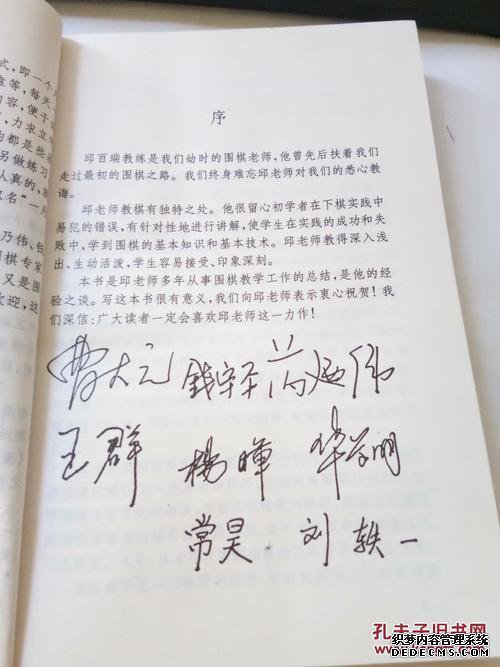 式，即一个
盘等，每天
内容，便于
，力求立
的都是些
另做练习
认真的，
取名“一月
乃伟、钱
围棋专家
又是围
欢迎，这
序
邱百瑞教练是我们幼时的围棋老师，他曾先后扶着我们
走过最初的围棋之路。我们终身难忘邱老师对我们的悉心教
诲。
邱老师教棋有独特之处。他很留心初学者在下棋实践中
易犯的错误，有针对性地进行讲解，使学生在实践的成功和失
败中，学到围棋的基本知识和基本技术。邱老师教得深入浅
出、生动活泼，学生容易接受、印象深刻。
本书是邱老师多年从事围棋教学工作的总结，是他的经
验之谈。写这本书很有意义，我们向邱老师表示衷心祝贺！我
们深信：广大读者一定会喜欢邱老师这一力作！
曹大元 钱宇平 芮迺伟
王群 楊暉 华学明
常昊 刘轶一
孔夫子旧书网
织梦内容管理系统
DEDECMS.COM